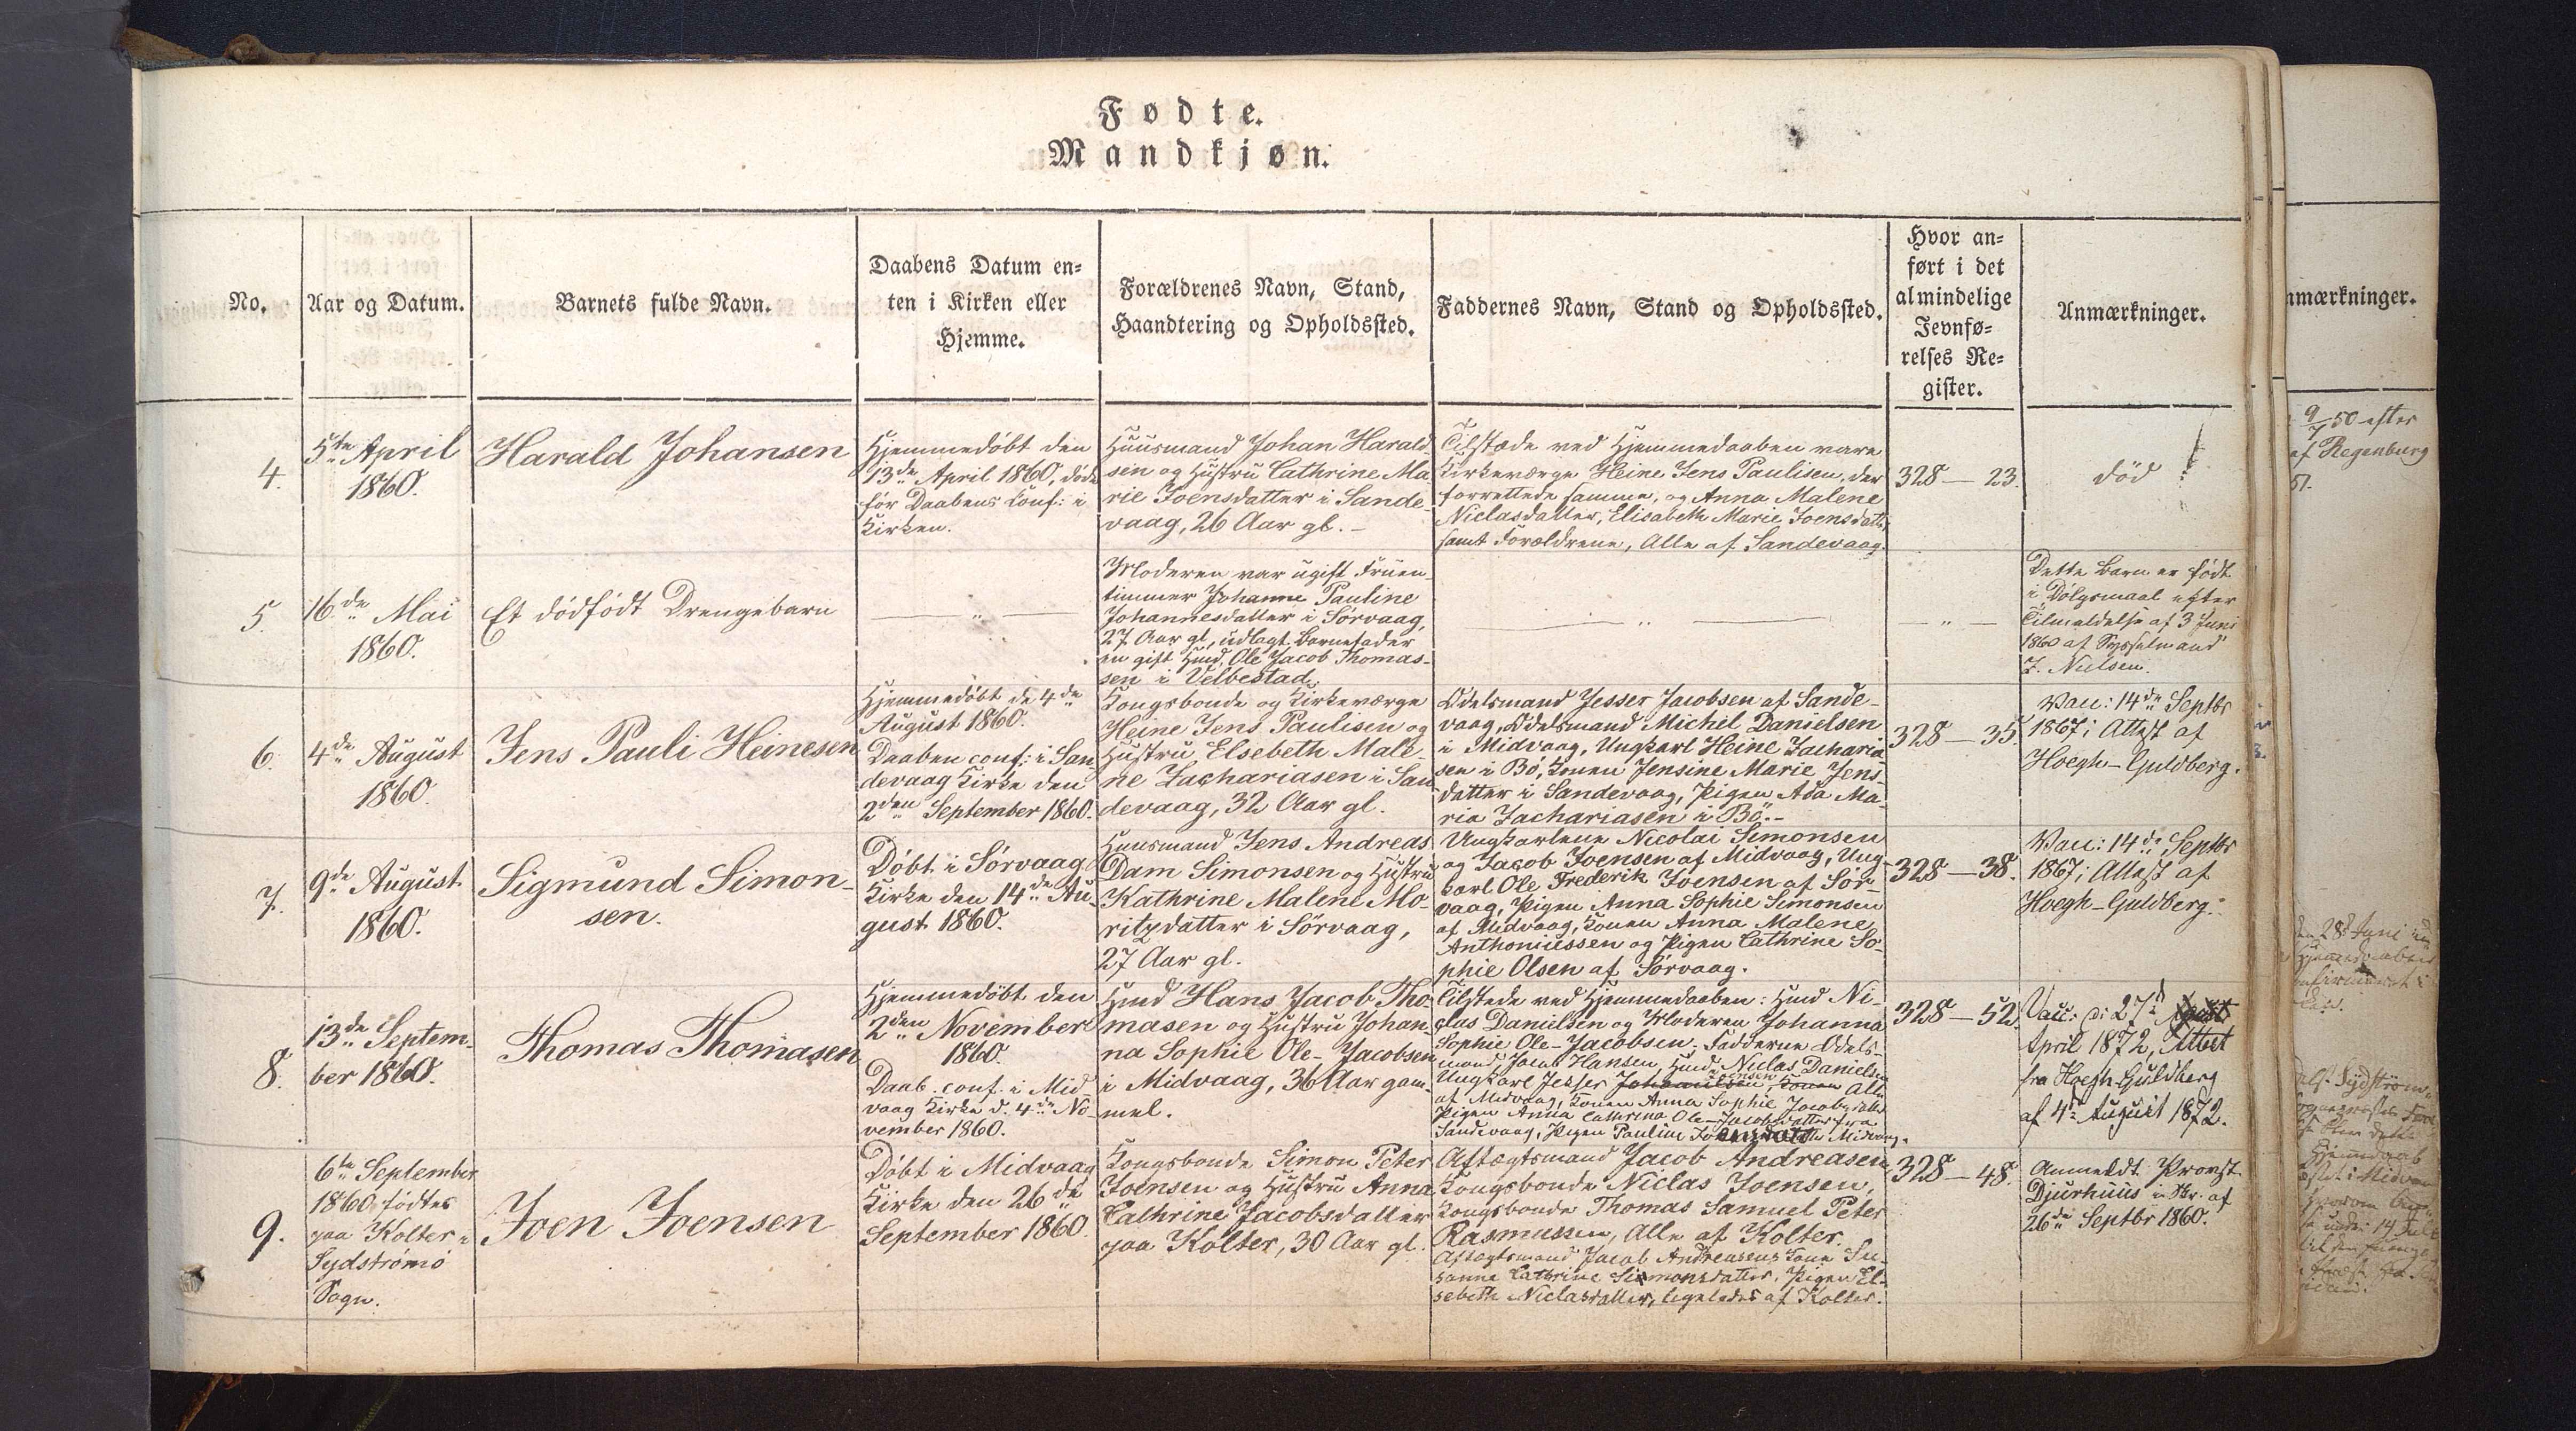 Fødte.
Mandkjøn.
No.
Aar og Datum.
Barnets fulde Navn.
Daabens Datum en=
ten i Kirken eller
Hjemme.
Forældrenes Navn, Stand,
Haandtering og Opholdssted.
Faddernes Navn, Stand og Opholdssted.
Hvor an=
ført i det
almindelige
Jevnfø=
relses Re=
gister.
Anmærkninger.
4.
5te April
1860.
Harald Johansen
Hjemmedöbt den
13de April 1860, döde
för Daabens Conf: i
Kirken.
Huusmand Johan Harald
sen og Hustru Cathrine Ma
rie Joensdatter i Sande-
vaag, 26 Aar gl. -
Tilstæde ved Hjemmedaaben vare
Kirkeværge Heine Jens Paulisen, der
forrettede samme, og Anna Malene
Niclasdatter, Elisabeth Marie Joensdatt:
samt Forældrene, Alle af Sandevaag.
328 - 23.
död
5.
16de Mai
1860.
Et dödfödt Drengebarn
- " -
Moderen var ugift Fruen-
timmer Johanne Pauline
Johannesdatter i Sörvaag,
27 Aar gl, udlagt Barnefader
en gift Hmd, Ole Jacob Thomas-
sen i Velbestad.
- " -
- " -
Dette Barn er födt
i Dölgsmaal efter
Tilmeldelse af 3 Juni
1860 af Sysselmand
J. Nielsen.
6.
4de August
1860.
Jens Pauli Heinesen
Hjemmedöbt de 4de
August 1860.
Daaben conf: i San
devaag Kirke den
2den September 1860.
Kongsbonde og Kirkeværge
Heine Jens Paulisen og
Hustru Elsebeth Male-
ne Zachariasen i San
devaag, 32 Aar gl.
Odelsmand Jesser Jacobsen af Sande-
vaag, Odelsmand Michel Danielsen
i Midvaag, Ungkarl Heine Zacharia
sen i Bö, Konen Jensine Marie Jens-
datter i Sandevaag, Pigen Ada Ma-
ria Zachariasen i Bö. -
328 - 35.
Vacc: 14de Septbr
1867; Attest af
Hoegh-Guldberg.
7.
9de August
1860.
Sigmund Simon-
sen.
Döbt i Sörvaag
Kirke den 14de Au-
gust 1860.
Huusmand Jens Andreas
Dam Simonsen og Hustru
Kathrine Malene Mo-
ritzdatter i Sörvaag,
27 Aar gl.
Ungkarlene Nicolai Simonsen
og Jacob Joensen af Midvaag, Ung-
karl Ole Frederik Joensen af Sör-
vaag, Pigen Anna Sophie Simonsen
af Midvaag, Konen Anna Malene
Anthoniussen og Pigen Cathrine So-
phie Olsen af Sörvaag.
328 - 38.
Vacc: 14de Septbr
1867; Attest af
Hoegh-Guldberg.
8.
13de Septem-
ber 1860.
Thomas Thomasen
Hjemmedöbt den
2den November
1860.
Daab. conf. i Mid
vaag Kirke d. 4de No-
vember 1860.
Hmd Hans Jacob Tho-
masen og Hustru Johan
na Sophie Ole-Jacobsen
i Midvaag, 36 Aar gam-
mel.
Tilstede ved Hjemmedaaben: Hmd Ni-
clas Danielsen og Moderen Johanna
Sophie Ole-Jacobsen. Fadderne Odels-
mand Jacob Hansen, Hmd Niclas Danielsen
Ungkarl Jesser Joensen Alle
af Midvaag, Konen Anna Sophie Jacobsdatt:
Pigen Anna Cathrina Ole-Jacobsdatter fra
Sandevaag, Pigen Pauline Joensdatter Midvaag.
328 - 52.
Vacc: d: 27d
April 1872, Attest
fra Hoegh-Guldberg
af 4de August 1872.
9.
6te September
1860 födtes
paa Kolter i
Sydströmö
Sogn.
Joen Joensen
Döbt i Midvaag
Kirke den 26de
September 1860.
Kongsbonde Simon Peter
Joensen og Hustru Anna
Cathrine Jacobsdatter
paa Kolter, 30 Aar gl.
Aftægtsmand Jacob Andreasen,
Kongsbonde Niclas Joensen,
Kongsbonde Thomas Samuel Peter
Rasmussen, Alle af Kolter.
Aftægtsmand Jacob Andreasens Kone Su-
sanne Cathrine Simonsdatter, Pigen El-
sebeth Niclasdatter, ligeledes af Kolter.
328 - 48.
Anmeldt Provst
Djurhuus i Skr. af
26de Septbr 1860.
nmærkninger.
9/7 50 efter
af Regenburg
51.